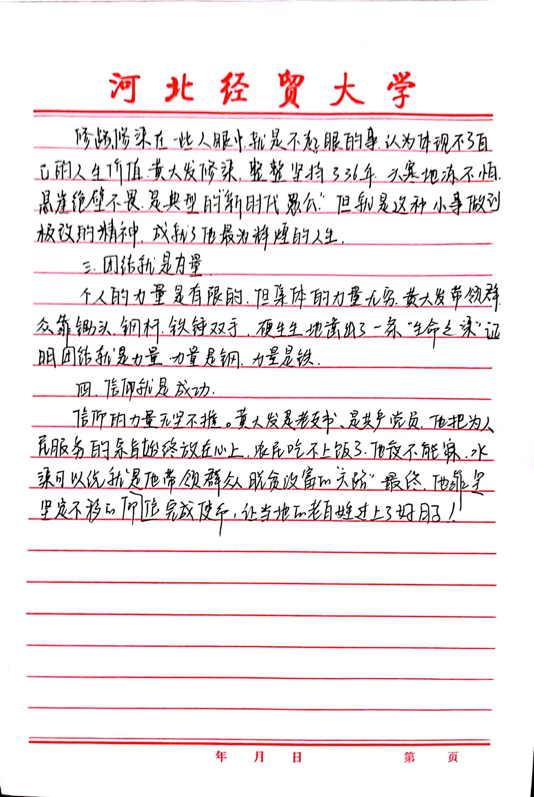 河北经贸大学
修路修渠在一些人眼中就是不起眼的事,认为体现不了自
己的人生价值,黄大发修渠,整整坚持了36年,天寒地冻不怕,
悬崖绝壁不畏,是典型的"新时代愚公",但就是这种小事做到
极致的精神,成就了他最为辉煌的人生.
三.团结就是力量.
个人的力量是有限的,但集体的力量无穷,黄大发带领群
众靠锄头、钢杆、铁锤双手,硬生生地凿出了一条"生命之渠"证
明团结就是力量,力量是钢,力量是铁.
四.信仰就是成功.
信仰的力量无坚不摧。黄大发是老支书、是共产党员,他把为人
民服务的宗旨始终放在心上,农民吃不上饭了,他夜不能寐,水
渠可以说就是他带领群众脱贫致富的"天路"最终,他靠坚
坚定不移的仰信完成使命,让当地的老百姓过上了好日子!
年 月 日
第 页